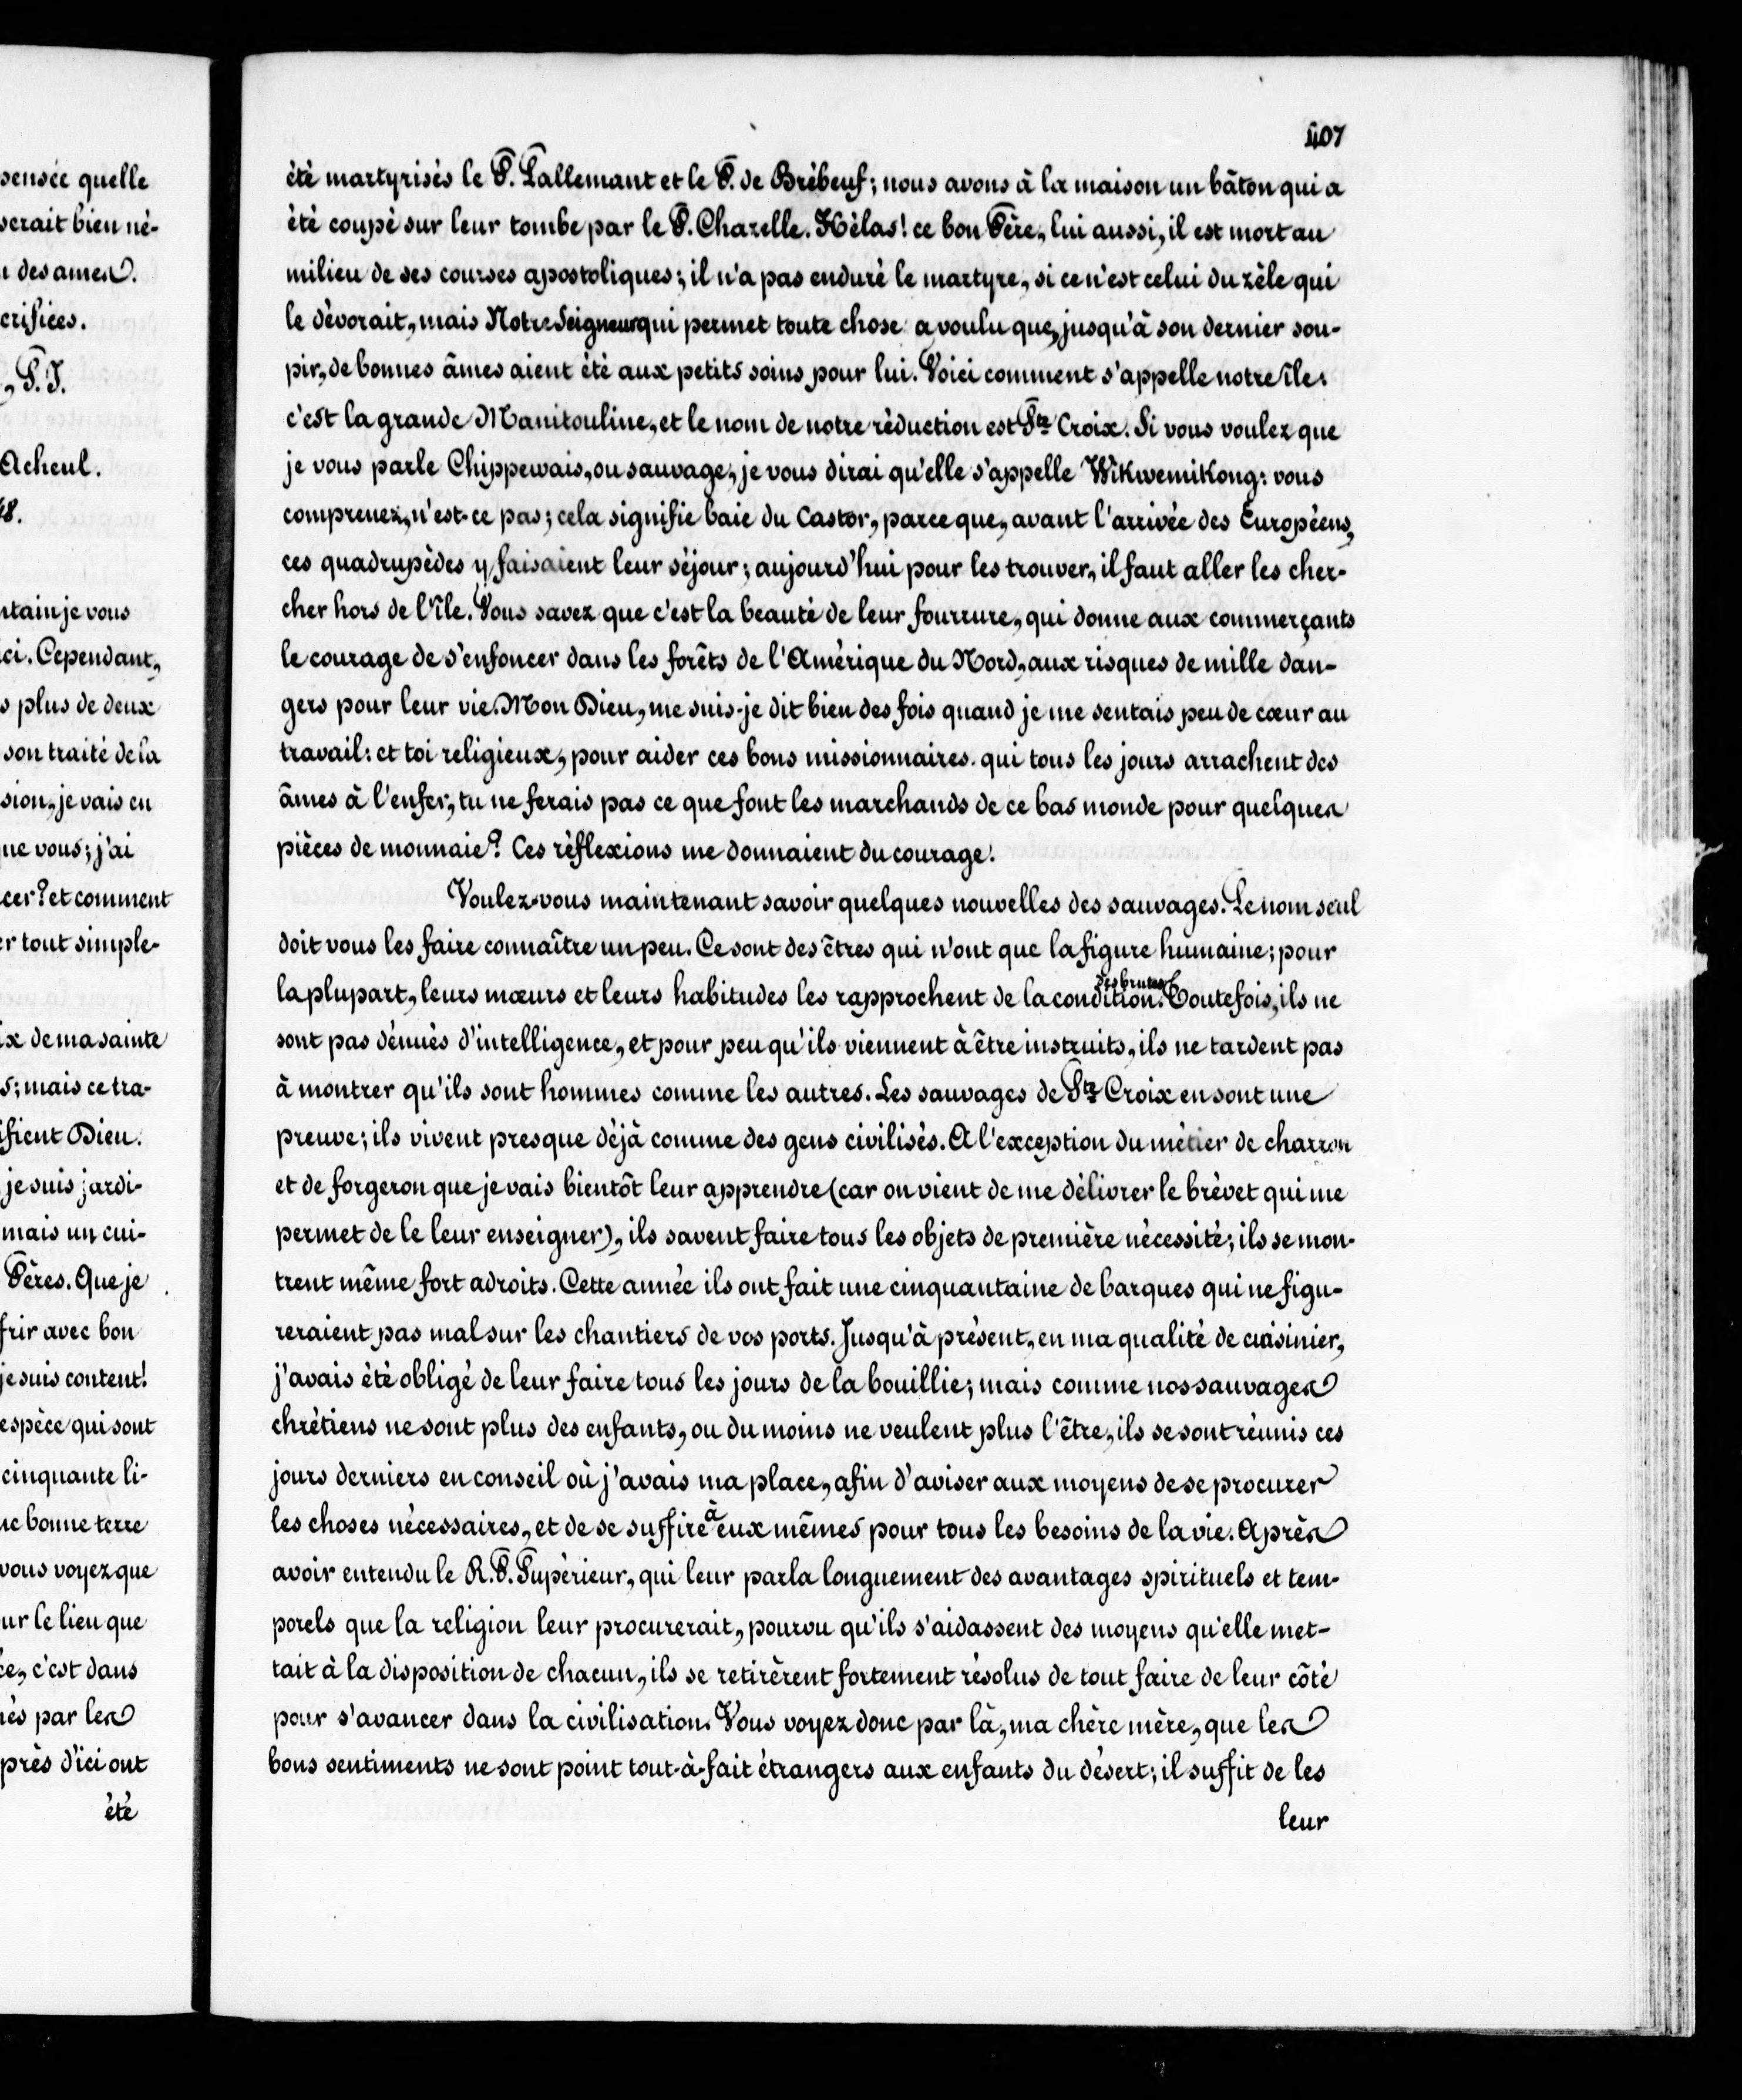 pensée quelle
serait bien né-
n des ames.
crifices.
, S.J.
Acheul.
48.
ntain je vous
ici. Cependant,
s plus de deux
son traité de la
sion, je vais en
ue vous; j'ai
cer? et comment
er tout simple-
ix de ma sainte
s; mais ce tra-
ifient Dieu.
je suis jardi-
mais un cui-
Pères. Que je
frir avec bon
je suis content!
espèce qui sont
cinquante li-
ne bonne terre
vous voyez que
ur le lieu que
ce, c'est dans
nés par les
près d'ici ont
été
407
été martyrisés le P. Lallemant et le P. de Brébeuf; nous avons à la maison un bâton qui a
été coupé sur leur tombe par le P. Chazelle. Hélas! ce bon Père, lui aussi, il est mort au
milieu de ses courses apostoliques; il n'a pas enduré le martyre, si ce n'est celui du zèle qui
le dévorait, mais Notre Seigneur qui permet toute chose a voulu que, jusqu'à son dernier sou-
pir, de bonnes âmes aient été aux petits soins pour lui. Voici comment s'appelle notre île:
c'est la grande Manitouline, et le nom de notre réduction est Ste Croix. Si vous voulez que
je vous parle Chippewais, ou sauvage, je vous dirai qu'elle s'appelle WikwemiKong: vous
comprenez, n'est-ce pas; cela signifie baie du Castor, parce que, avant l'arrivée des Européens,
ces quadrupèdes y faisaient leur séjour; aujourd'hui pour les trouver, il faut aller les cher-
cher hors de l'île. Vous savez que c'est la beauté de leur fourrure, qui donne aux commerçants
le courage de s'enfoncer dans les forêts de l'Amérique du Nord, aux risques de mille dan-
gers pour leur vie. Mon Dieu, me suis-je dit bien des fois quand je me sentais peu de cœur au
travail: et toi religieux, pour aider ces bons missionnaires. qui tous les jours arrachent des
âmes à l'enfer, tu ne ferais pas ce que font les marchands de ce bas monde pour quelques
pièces de monnaie? Ces réflexions me donnaient du courage.
Voulez-vous maintenant savoir quelques nouvelles des sauvages. Le nom seul
doit vous les faire connaître un peu. Ce sont des êtres qui n'ont que la figure humaine; pour
la plupart, leurs mœurs et leurs habitudes les rapprochent de la condition des brutes. Toutefois, ils ne
sont pas dénués d'intelligence, et pour peu qu'ils viennent à être instruits, ils ne tardent pas
à montrer qu'ils sont hommes comme les autres. Les sauvages de Ste Croix en sont une
preuve; ils vivent presque déjà comme des gens civilisés. A l'exception du métier de charron
et de forgeron que je vais bientôt leur apprendre (car on vient de me délivrer le brévet qui me
permet de le leur enseigner), ils savent faire tous les objets de première nécessité; ils se mon-
trent même fort adroits. Cette année ils ont fait une cinquantaine de barques qui ne figu-
reraient pas mal sur les chantiers de vos ports. Jusqu'à présent, en ma qualité de cuisinier,
j'avais été obligé de leur faire tous les jours de la bouillie; mais comme nos sauvages
chrétiens ne sont plus des enfants, ou du moins ne veulent plus l'être, ils se sont réunis ces
jours derniers en conseil où j'avais ma place, afin d'aviser aux moyens de se procurer
les choses nécessaires, et de se suffire à eux mêmes pour tous les besoins de la vie. Après
avoir entendu le R.P. Supérieur, qui leur parla longuement des avantages spirituels et tem-
porels que la religion leur procurerait, pourvu qu'ils s'aidassent des moyens qu'elle met-
tait à la disposition de chacun, ils se retirèrent fortement résolus de tout faire de leur côté
pour s'avancer dans la civilisation. Vous voyez donc par là, ma chère mère, que les
bons sentiments ne sont point tout-à-fait étrangers aux enfants du désert; il suffit de les
leur